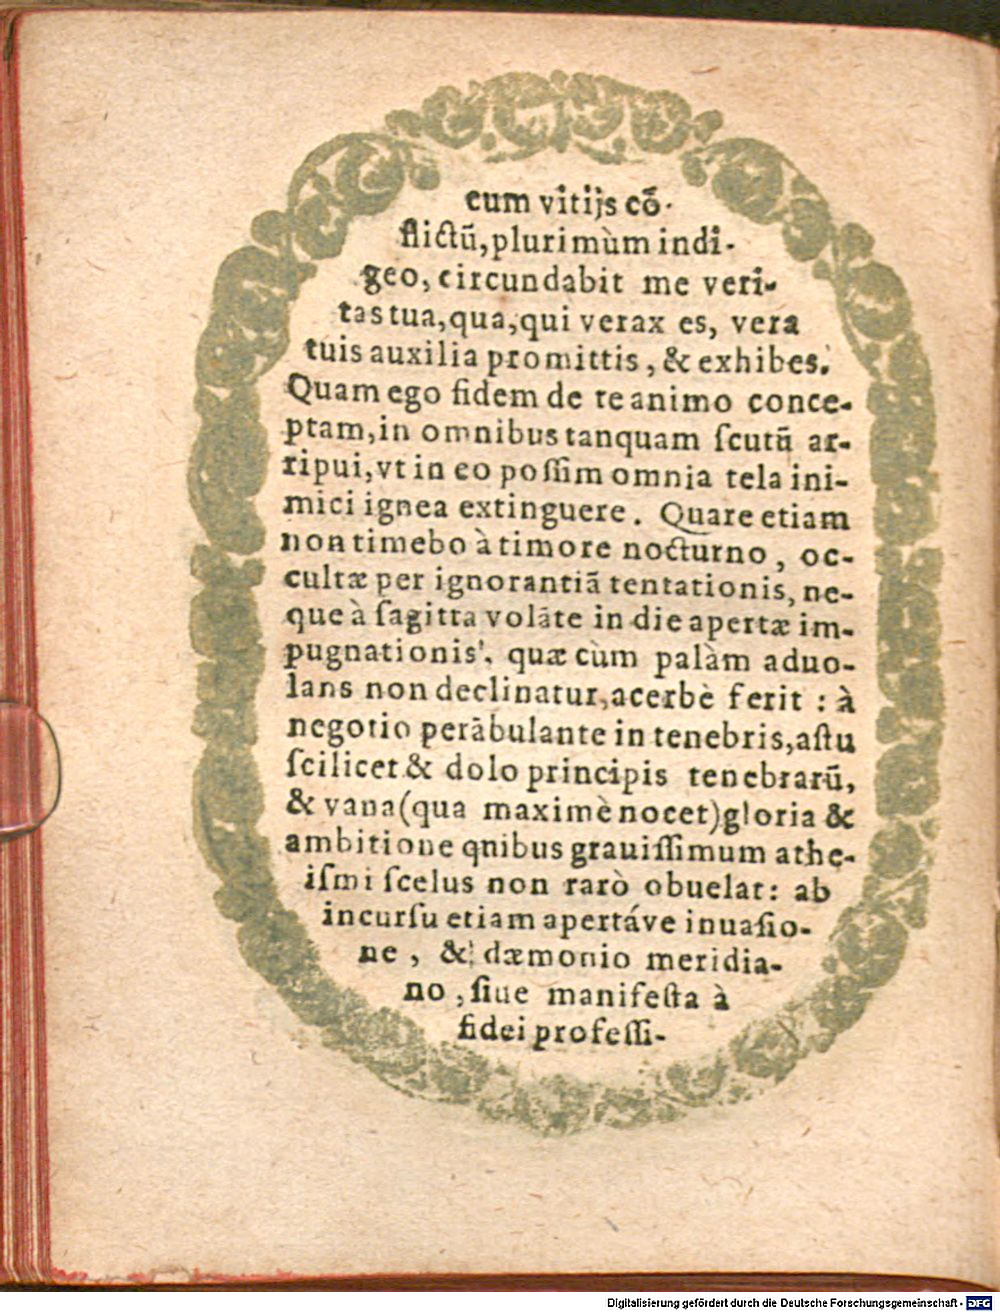 cum vitijs cō-
flictū, plurimùm indi-
geo, circundabit me veri-
tas tua, qua, qui verax es, vera
tuis auxilia promittis, & exhibes.
Quam ego fidem de te animo conce-
ptam, in omnibus tanquam ſcutū ar-
ripui, vt in eo poſſim omnia tela ini-
mici ignea extinguere. Quare etiam
non timebo à timore nocturno, oc-
cultæ per ignorantiā tentationis, ne-
que à ſagitta volāte in die apertæ im-
pugnationis, quæ cùm palàm aduo-
lans non declinatur, acerbè ferit : à
negotio perābulante in tenebris, aſtu
ſcilicet & dolo principis tenebrarū,
& vana (qua maximè nocet) gloria &
ambitione qnibus grauiſſimum athe-
iſmi ſcelus non rarò obuelat: ab
incurſu etiam apertáve inuaſio-
ne, & dæmonio meridia-
no, ſiue manifeſta à
fidei profeſſi-
Digitalisierung gefördert durch die Deutsche Forschungsgemeinschaft - DFG